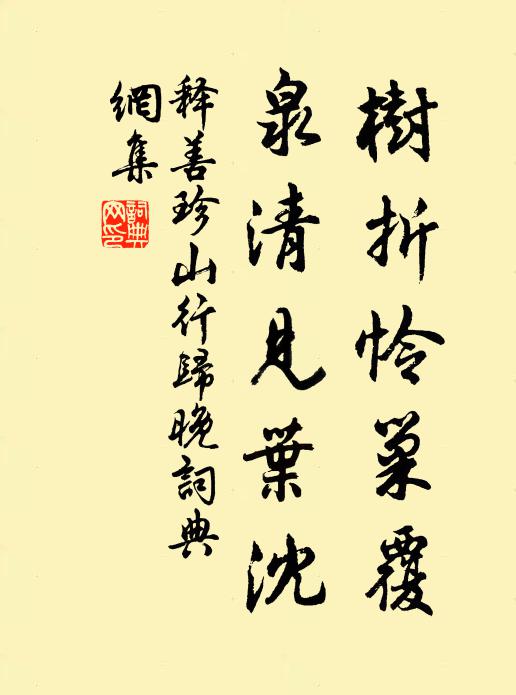 樹折怜巢覆
泉清見葉沈
释善珍山行歸晚詞典
網集
詞典网印